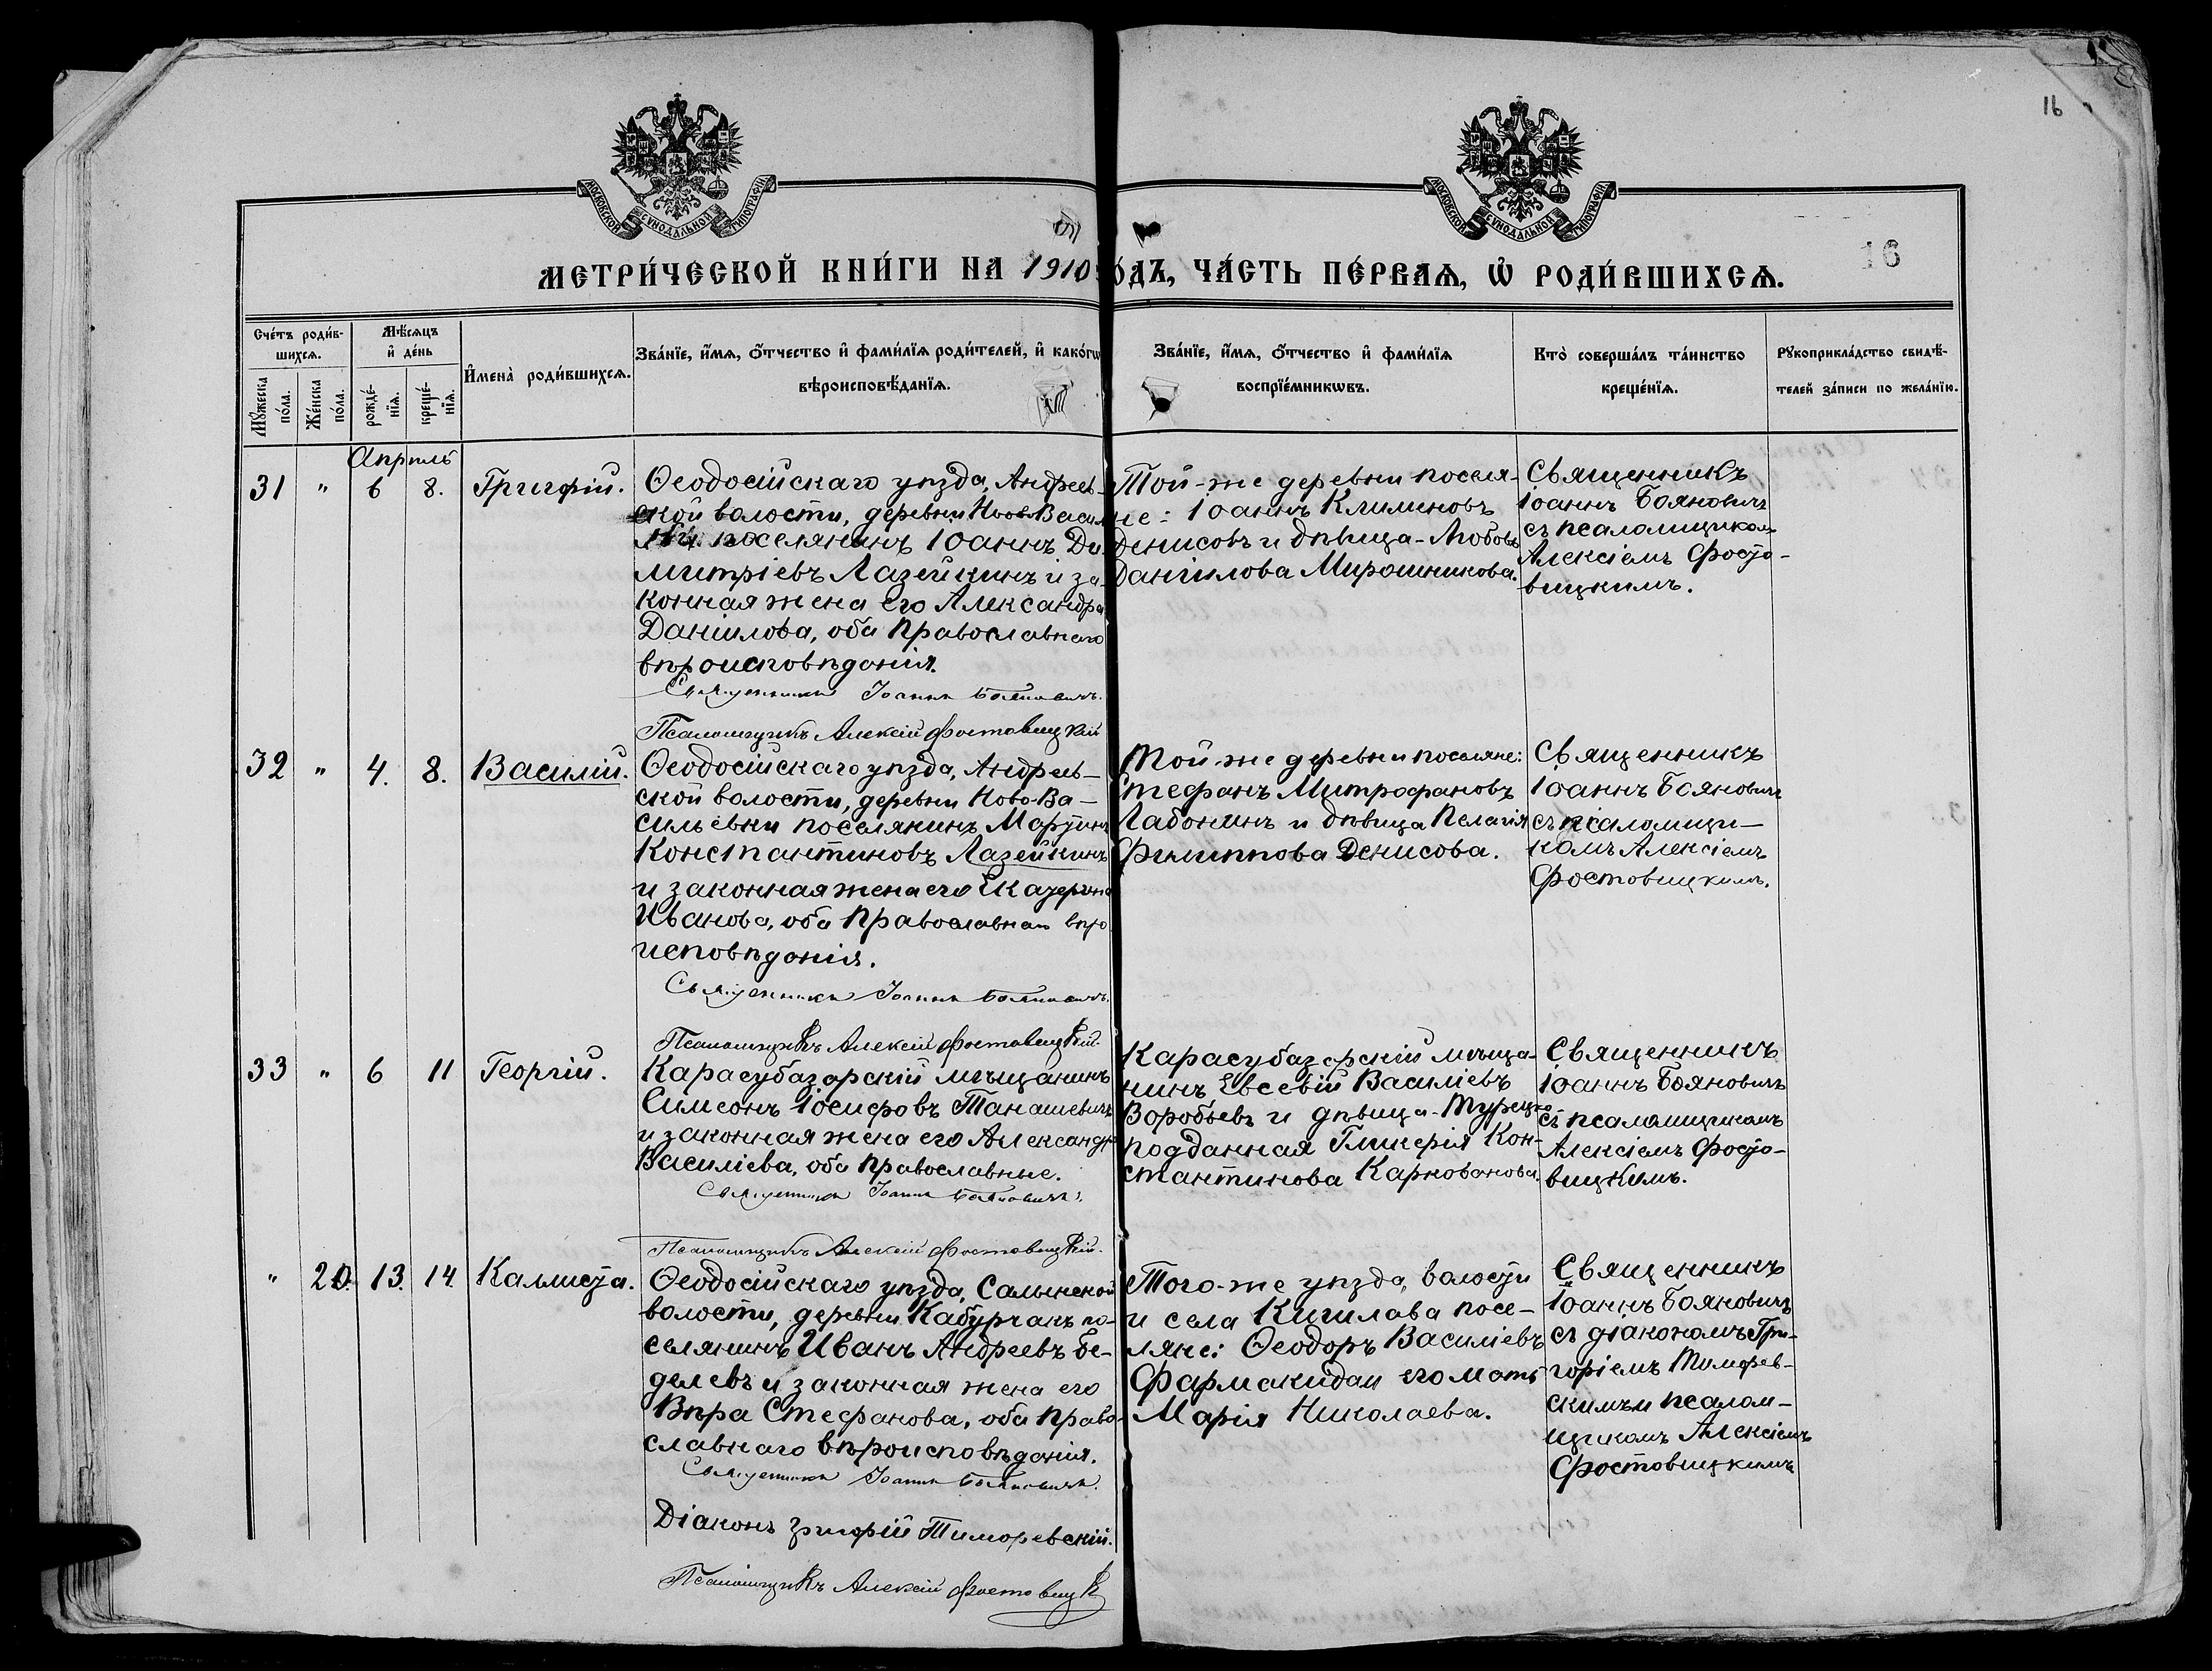 16
МОСКОВСКОЙ СѴНОДАЛЬНОЙ ТИПОГРАФІИ
МОСКОВСКОЙ СѴНОДАЛЬНОЙ ТИПОГРАФІИ
16
МЕТРИ́ЧЕСКОЙ КНИ́ГИ НА 1910 ГО́ДЪ, ЧА́СТЬ ПЕ́РВАѦ, Ѡ҆ РОДИ́ВШИХСѦ.
Сче́тъ роди́в-
шихсѧ.
Мꙋ́жеска по́ла.
Же́нска по́ла.
Мѣ́сѧцъ
и҆ де́нь
рожде́-
нїѧ.
креще́-
нїѧ.
И҆мена̀ роди́вшихсѧ.
Зва́нїе, и҆́мѧ, ѻ҆́тчество и҆ фами́лїѧ роди́телей, и҆ како́гѡ
вѣроисповѣ́данїѧ.
Зва́нїе, и҆́мѧ, ѻ҆́тчество и҆ фами́лїѧ
воспрїе́мникѡвъ.
Кто̀ соверша́лъ та́инство
креще́нїѧ.
Рꙋкоприкла́дство свидѣ́-
телей за́писи по жела́нїю.
Апрѣль
31 " 6 8. Григорій.
Ѳеодосійскаго уѣзда, Андреев-
ской волости, деревни Ново-Васил
поселянинъ Іоаннъ Ди-
митріевъ Лазейкинъ и за-
конная жена его Александра
Даніилова, оба православнаго
вѣроисповѣданія.
Священникъ Іоаннъ Бояновичъ.
Псаломщикъ Алексій Фостовицкій
Той-же деревни поселя-
не: Іоаннъ Климиновъ
Денисовъ и дѣвица-Любовь
Даніилова Мирошникова.
Священникъ
Іоаннъ Бояновичъ
съ псаломщикомъ
Алексіемъ Фосто-
вицкимъ.
32 " 4. 8. Василій.
Ѳеодосійскаго уѣзда, Андреев-
ской волости, деревни Ново-Ва-
сильевки поселянинъ Мартинъ
Константиновъ Лазейкинъ
и законная жена его Екатерина
Иванова, оба православнаго вѣро
исповѣданія.
Священникъ Іоаннъ Бояновичъ.
Псаломщикъ Алексій Фостовицкій.
Той-же деревни поселяне:
Стефанъ Митрофановъ
Лабонинъ и дѣвица Пелагія
Филиппова Денисова.
Священникъ
Іоаннъ Бояновичъ
съ псаломщи-
комъ Алексіемъ
Фостовицкимъ.
33 " 6 11 Георгій.
Карасубазарскій мѣщанинъ
Симеонъ Іосифовъ Танашевичъ
и законная жена его Александра
Василіева, оба православные.
Священникъ Іоаннъ Бояновичъ.
Псаломщикъ Алексій Фостовицкій.
Карасубазарскій мѣща-
нинъ Евсевій Василіевъ
Воробьевъ и дѣвица-Турецко
подданная Гликерія Кон-
стантинова Карнованова.
Священникъ
Іоаннъ Бояновичъ
съ псаломщикомъ
Алексіемъ Фосто-
вицкимъ.
" 20. 13. 14 Калиста.
Ѳеодосійскаго уѣзда, Салынской
волости, деревни Кабурчакъ по-
селянинъ Иванъ Андреевъ Бе-
делевъ и законная жена его
Вѣра Стефанова, оба право-
славнаго вѣроисповѣданія.
Священникъ Іоаннъ Бояновичъ.
Діаконъ Григорій Тиморевскій.
Псаломщикъ Алексій Фостовицк
Того-же уѣзда, волости
и села Кишлава посе-
ляне: Ѳеодоръ Василіевъ
Фармакиди и его мать
Марія Николаева.
Священникъ
Іоаннъ Бояновичъ
съ діакономъ Гри-
горіемъ Тиморев-
скимъ и псалом-
щикомъ Алексіемъ
Фостовицкимъ